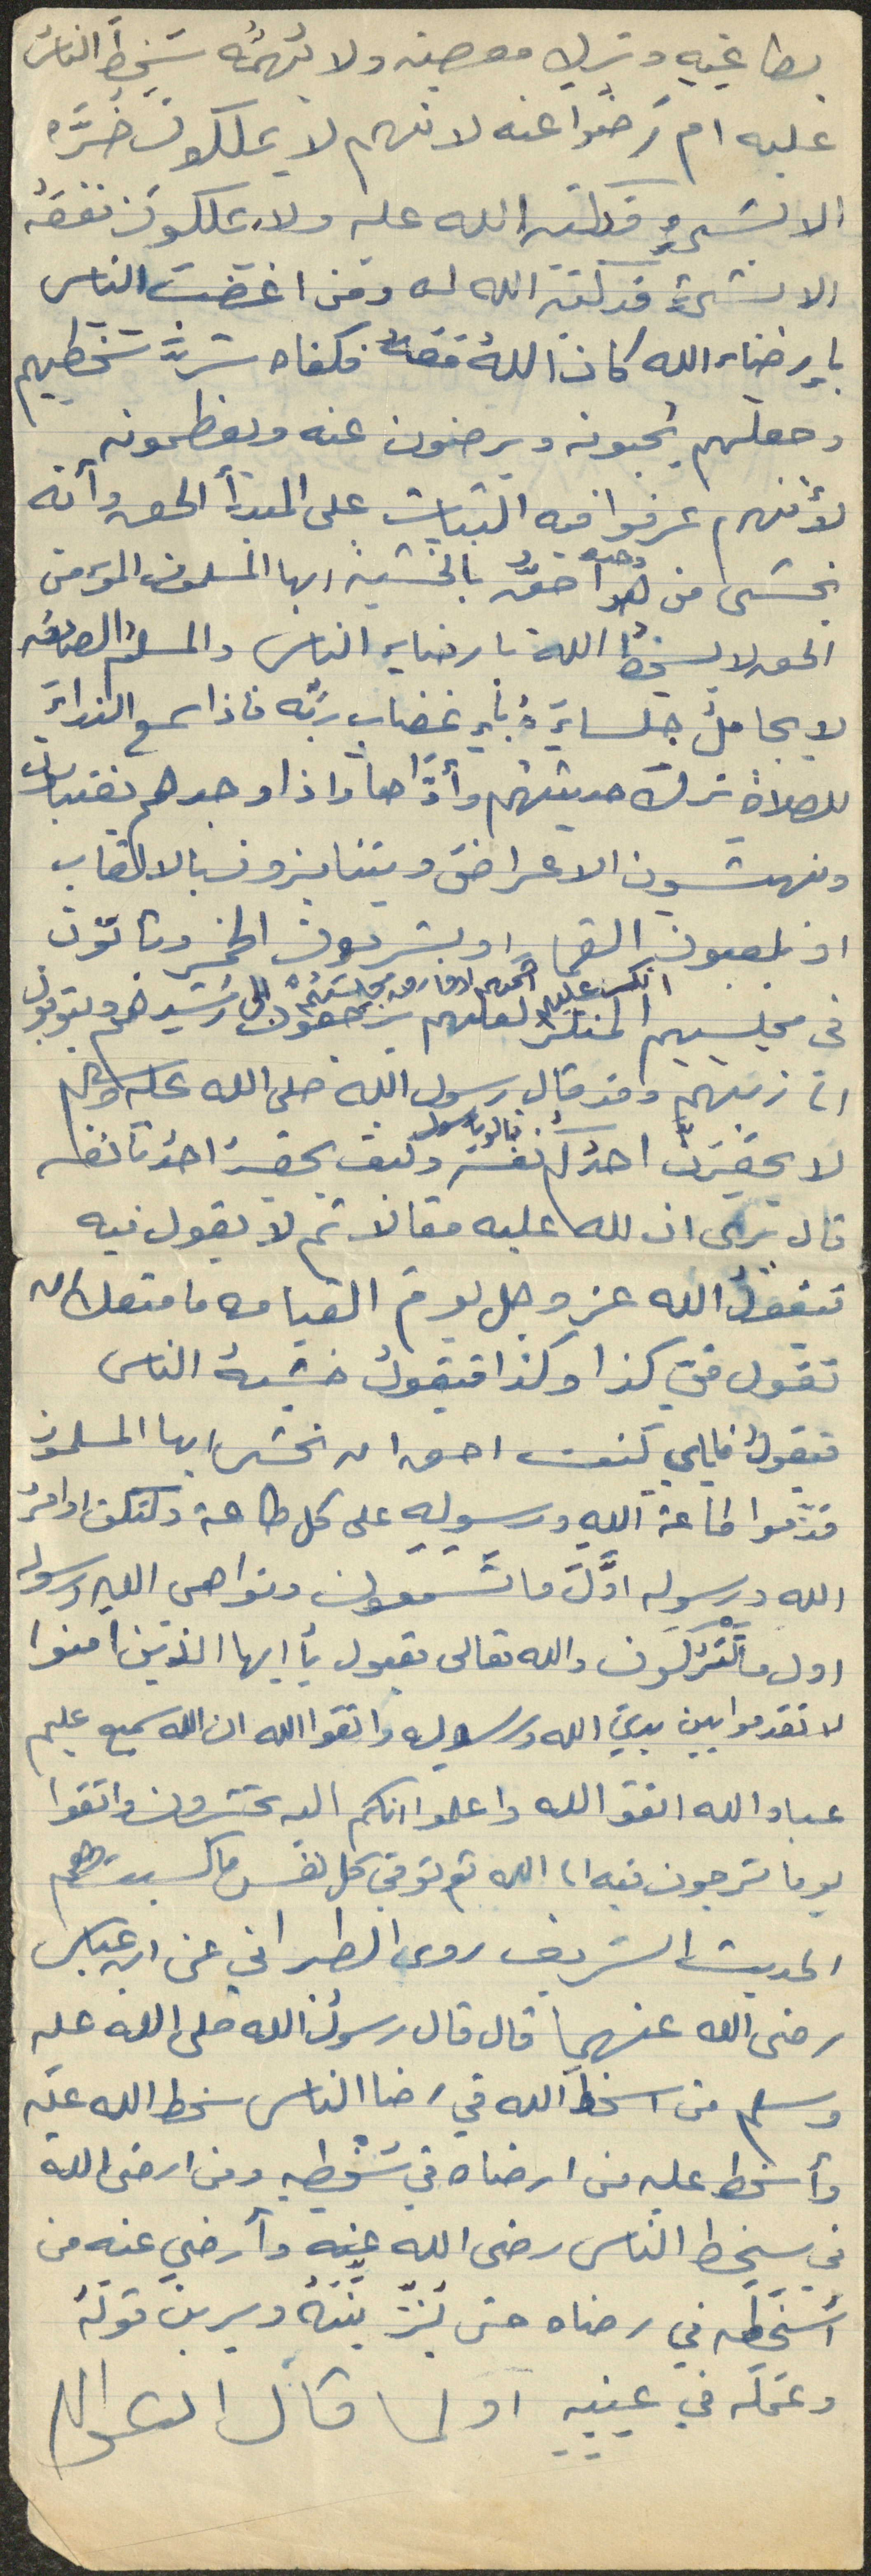 بطاعته وترك معصيته ولا يُهمُّه سَخِطَ الناسُ
عليه ام رَضُوا عنه لانهم لا يملكون ضَرَّه
الا بشيءٍ قد كتبه الله عليه ولا يملكون نفعَه
الا بشيءٍ قد كتبه الله له ومن اغضب الناس
بإرضاء الله كان اللهُ معه فكفاه شرَّ سَخَطِهم
وجعلهم يُحبونه ويرضون عنه ويعظمونه
لأنهم عرفوا فيه الثبات على المبدأ الحق وأنه
يخشى من هو احقُّ بالخشية ايها المسلمون المؤمن
الحق لا يسخطُ الله بارضاء الناس والمسلمُ الصادق
لا يجاملُ جلساءَهُ بإغضاب ربِّه فاذا سمع النداءَ
للصلاة ترك حديثهم وأدَّاها واذا وجدهم يغتابون
وينهشون الاعراضَ ويتنابزون بالالقاب
او يلعبون القمار او يشربون الخمر ويأتون
في مجلسهم المنكر انكر عليهم او فارق مجلسهم لعلهم يرجعون الى رشدهم ويتوبون
الى ربهم وقد قال رسول الله صلى الله عليه وسلم
لا يحقرنَّ احدُكم نفسَه قالوا يا رسول وكيف يحقرُ احدُنا نفسه
قال يرى ان لله عليه مقالا ثم لا يقول فيه
فيقولُ الله عز وجل يوم القيامه ما منعك ان
تقول فيَّ كذا وكذا فيقولُ خشيةُ الناس
فيقولُ فإياي كنت احق ان تخشى ايها المسلمون
قدِّموا طاعةَ اللهِ ورسولِهِ على كل طاعة ولتكن اوامرُ
الله ورسوله اوَّلَ ما تَسْمَعون ونواهي الله ورسوله
اول ما تَتْرُكون والله تعالى يقول يأايها الذين امنوا
لا تقدموا بين يديَ الله ورسوله واتقوا الله ان الله سميع عليم
عباد الله اتقو الله واعلموا انكم اليه تحشرون واتقوا
يوما ترجعون فيه الى الله ثم توفى كل نفس ما كسبت وهم
الحديث الشريف روى الطبراني عن ابن عباس
رضى الله عنهما قال قال رسولُ الله صلى الله عليه
وسلم من اسخطَ الله في رضا الناس سخط الله عليه
وأسخط عليه من ارضاه في سَخَطِهِ ومن ارضى الله
في سخط الناس رضى الله عنه وأرضى عنه من
اسْخَطَه في رضاه حتى يُزَيِّنَهُ ويزين قولَهُ
وعَمَلَه في عينيه او لما قال